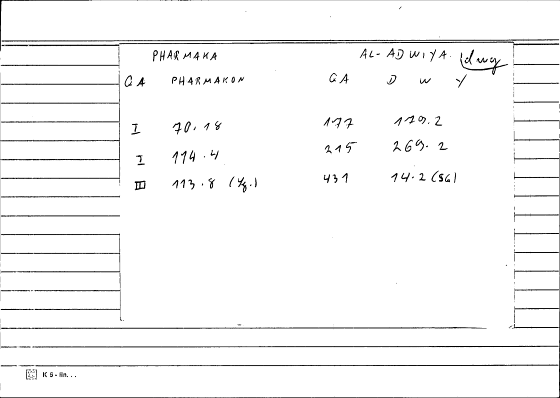 PHARMAKA AL-ADWIYA. drug
GA PHARMAKON GA D W Y
I 70.18 177 179.2
I 114.4 215 269.2
III 113.8 431 14.2 (SG)
K 5 - lin...